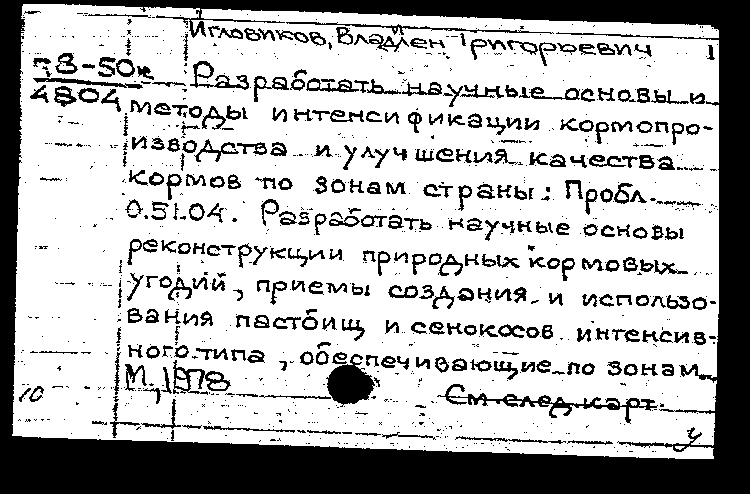 Игловиков, Владлен Григорьевич 1
78-50к Разработать научные основы и
4804 методы интенсификации кормопро-
изводства и улучшения качества
кормов по зонам страны: Пробл.
0.51.04. Разработать научные основы
реконструкции природных кормовых
угодий, приемы создания и использо-
вания пастбищ и сенокосов интенсив-
ного типа, обеспечивающие по зонам
М., 1978
10 См. след. карт.
У